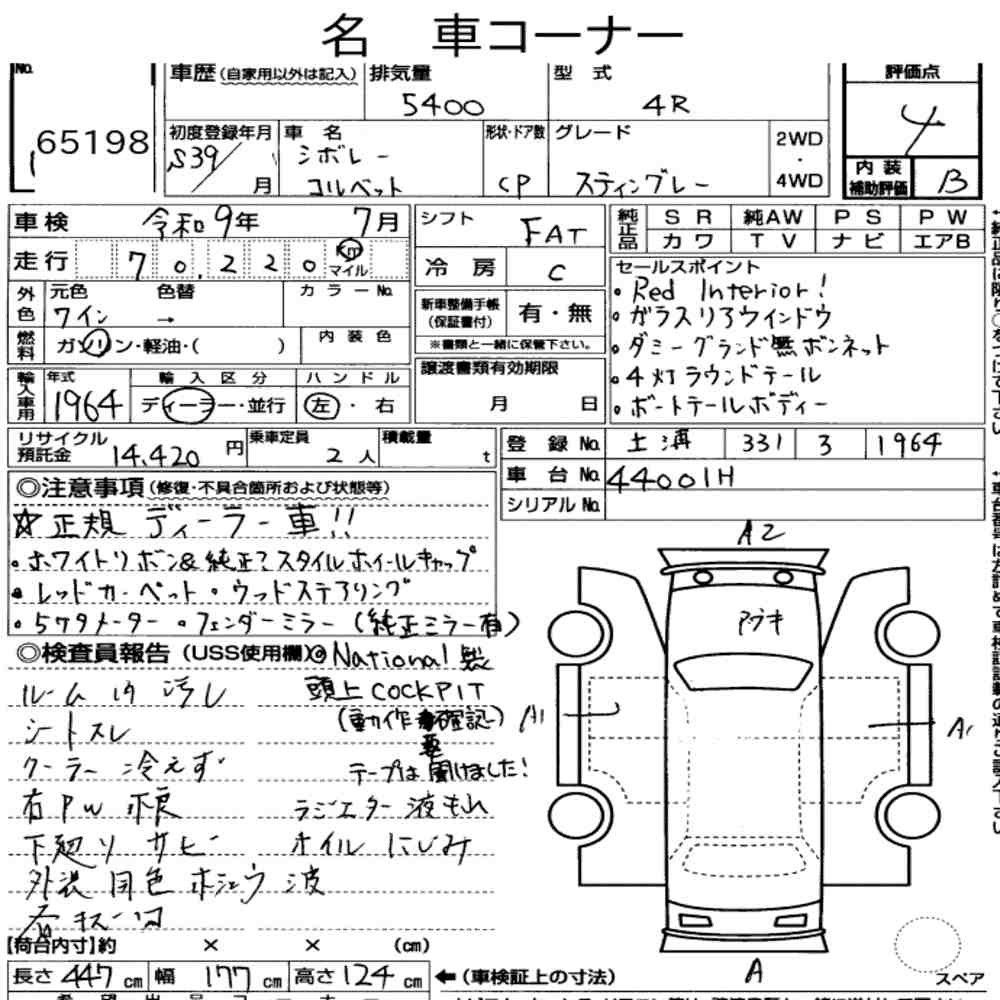 名 車コーナー
No. 65198
車歴(自家用以外は記入) 排気量 5400 型式 4R
評価点 4
初度登録年月 S39/ 月 車名 シボレー コルベット 形状・ドア数 CP グレード スティングレー 2WD・4WD
内装補助評価 B
車検 令和9年 7月
シフト FAT
純正品 SR 純AW PS PW
カワ TV ナビ エアB
走行 70,220 Km マイル
冷房 C
外色 元色 ワイン 色替 → カラーNo.
新車整備手帳(保証書付) 有・無
※書類と一緒に保管下さい。
燃料 ガソリン・軽油・( ) 内装色
譲渡書類有効期限 月 日
セールスポイント
・Red Interior!
・ガラスリアウインドウ
・ダミーグランド無ボンネット
・4灯ラウンドテール
・ボートテールボディー
輸入車用 年式 1964 輸入区分 ディーラー・並行 ハンドル 左・右
リサイクル預託金 14,420円 乗車定員 2人 積載量 t
登録No. 331 3 1964
車台No. 44001H
シリアルNo.
◎注意事項(修復・不具合箇所および状態等)
☆正規ディーラー車!!
・ホワイトリボン&純正?スタイルホイールキャップ
・レッドカーペット・ウッドステアリング
・5ケタメーター ・フェンダーミラー(純正ミラー有)
◎検査員報告(USS使用欄)
◎National製
頭上COCKPIT
(動作 確認)
テープは聞けました!
ルーム内汚し
シートスレ
クーラー冷えず
右PW不良
ラジエター液もれ
下廻りサビ
オイルにじみ
外装同色ホシュウ波
A2
アウキ
A1
A1
A
スペア
【荷台内寸】約 × × (cm)
長さ 447cm 幅 177cm 高さ 124cm ←(車検証上の寸法)